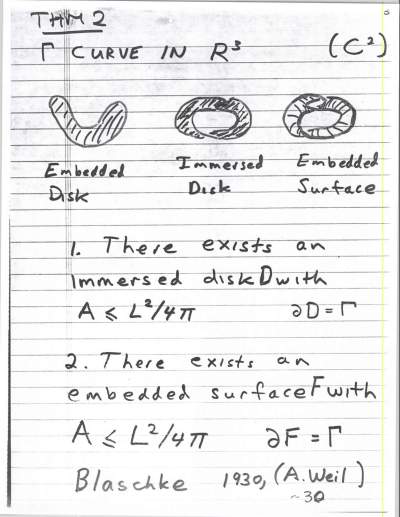 THM 2
Γ CURVE IN R³ (C²)
Embedded Disk
Immersed Disk
Embedded Surface
1. There exists an
immersed disk D with
A ≤ L²/4π ∂D = Γ
2. There exists an
embedded surface F with
A ≤ L²/4π ∂F = Γ
Blaschke 1930, (A. Weil)
~30